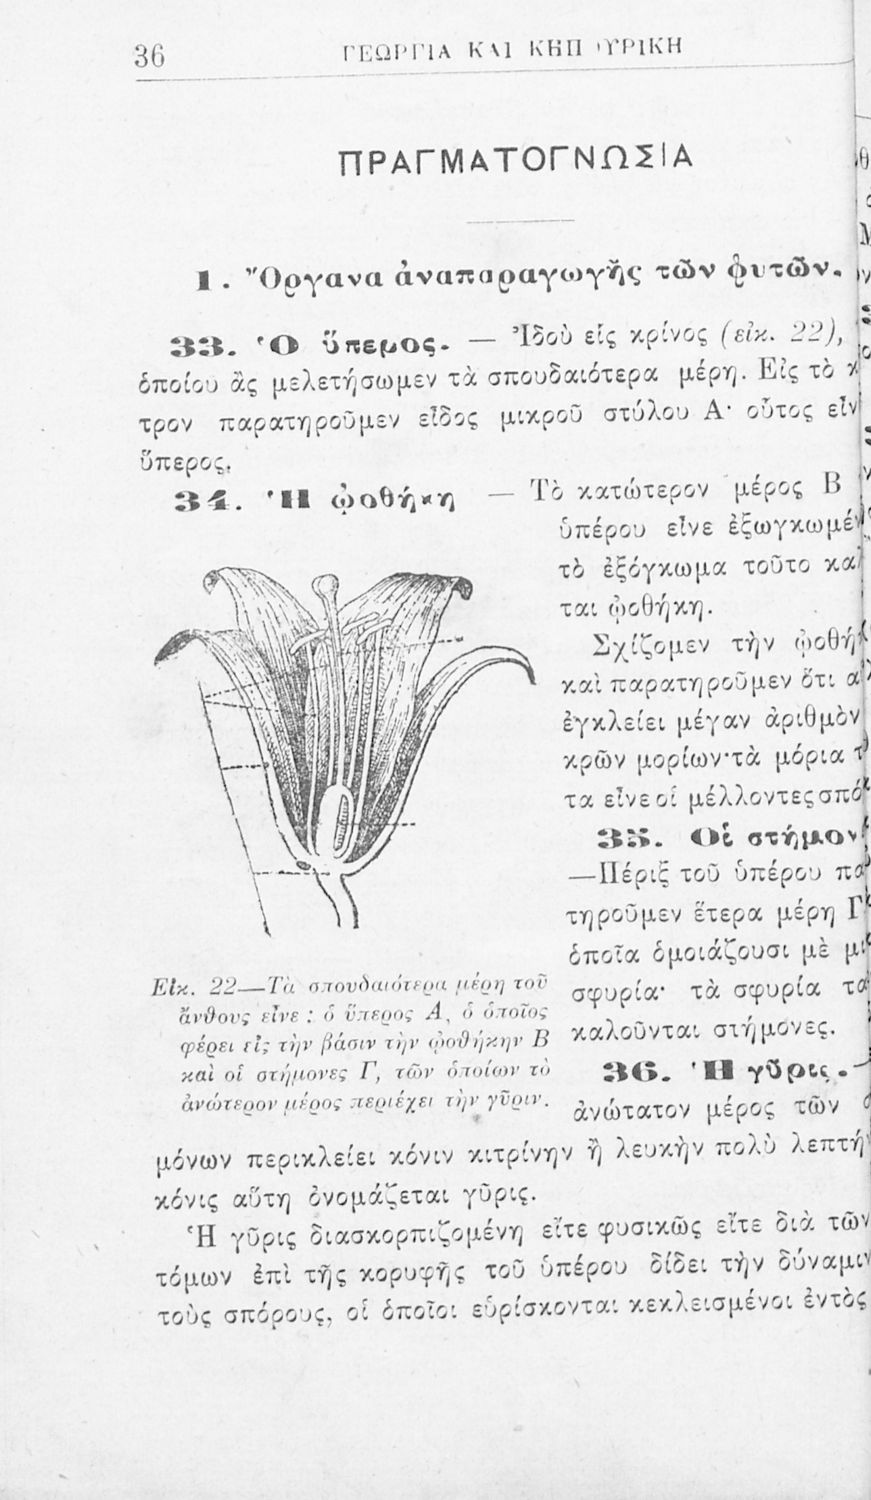 36
ΓΕΩΡΓΙΑ ΚΑΙ ΚΗΠ ΥΡΙΚΗ
ΠΡΑΓΜΑΤΟΓΝΩΣΙΑ
1. Ὄργανα ἀναπαραγωγῆς τῶν φυτῶν.
33. Ὁ ὕπερος. — Ἰδοὺ εἷς κρίνος (εἰκ. 22),
ὁποίου ἂς μελετήσωμεν τὰ σπουδαιότερα μέρη. Εἰς τὸ κ
τρον παρατηροῦμεν εἶδος μικροῦ στύλου Α· οὗτος εἶν
ὕπερος.
34. Ἡ ᾠοθήκη — Τὸ κατώτερον μέρος Β
ὑπέρου εἶνε ἐξωγκωμέν
τὸ ἐξόγκωμα τοῦτο κα
ται ᾠοθήκη.
Σχίζομεν τὴν ᾠοθή
καὶ παρατηροῦμεν ὅτι α
ἐγκλείει μέγαν ἀριθμὸν
κρῶν μορίων· τὰ μόρια τ
τα εἶνε οἱ μέλλοντες σπό
35. Οἱ στήμον
—Πέριξ τοῦ ὑπέρου πα
τηροῦμεν ἕτερα μέρη Γ
ὁποῖα ὁμοιάζουσι μὲ μι
σφυρία· τὰ σφυρία τα
καλοῦνται στήμονες.
Εἰκ. 22—Τὰ σπουδαιότερα μέρη τοῦ
ἄνθους εἶνε : ὁ ὕπερος Α, ὁ ὁποῖος
φέρει εἰς τὴν βάσιν τὴν ᾠοθήκην Β
καὶ οἱ στήμονες Γ, τῶν ὁποίων τὸ
ἀνώτερον μέρος περιέχει τὴν γῦριν.
36. Ἡ γῦρις.—
ἀνώτατον μέρος τῶν
μόνων περικλείει κόνιν κιτρίνην ἢ λευκὴν πολὺ λεπτή
κόνις αὕτη ὀνομάζεται γῦρις.
Ἡ γῦρις διασκορπιζομένη εἴτε φυσικῶς εἴτε διὰ τῶν
τόμων ἐπὶ τῆς κορυφῆς τοῦ ὑπέρου δίδει τὴν δύναμιν
τοὺς σπόρους, οἱ ὁποῖοι εὑρίσκονται κεκλεισμένοι ἐντὸς